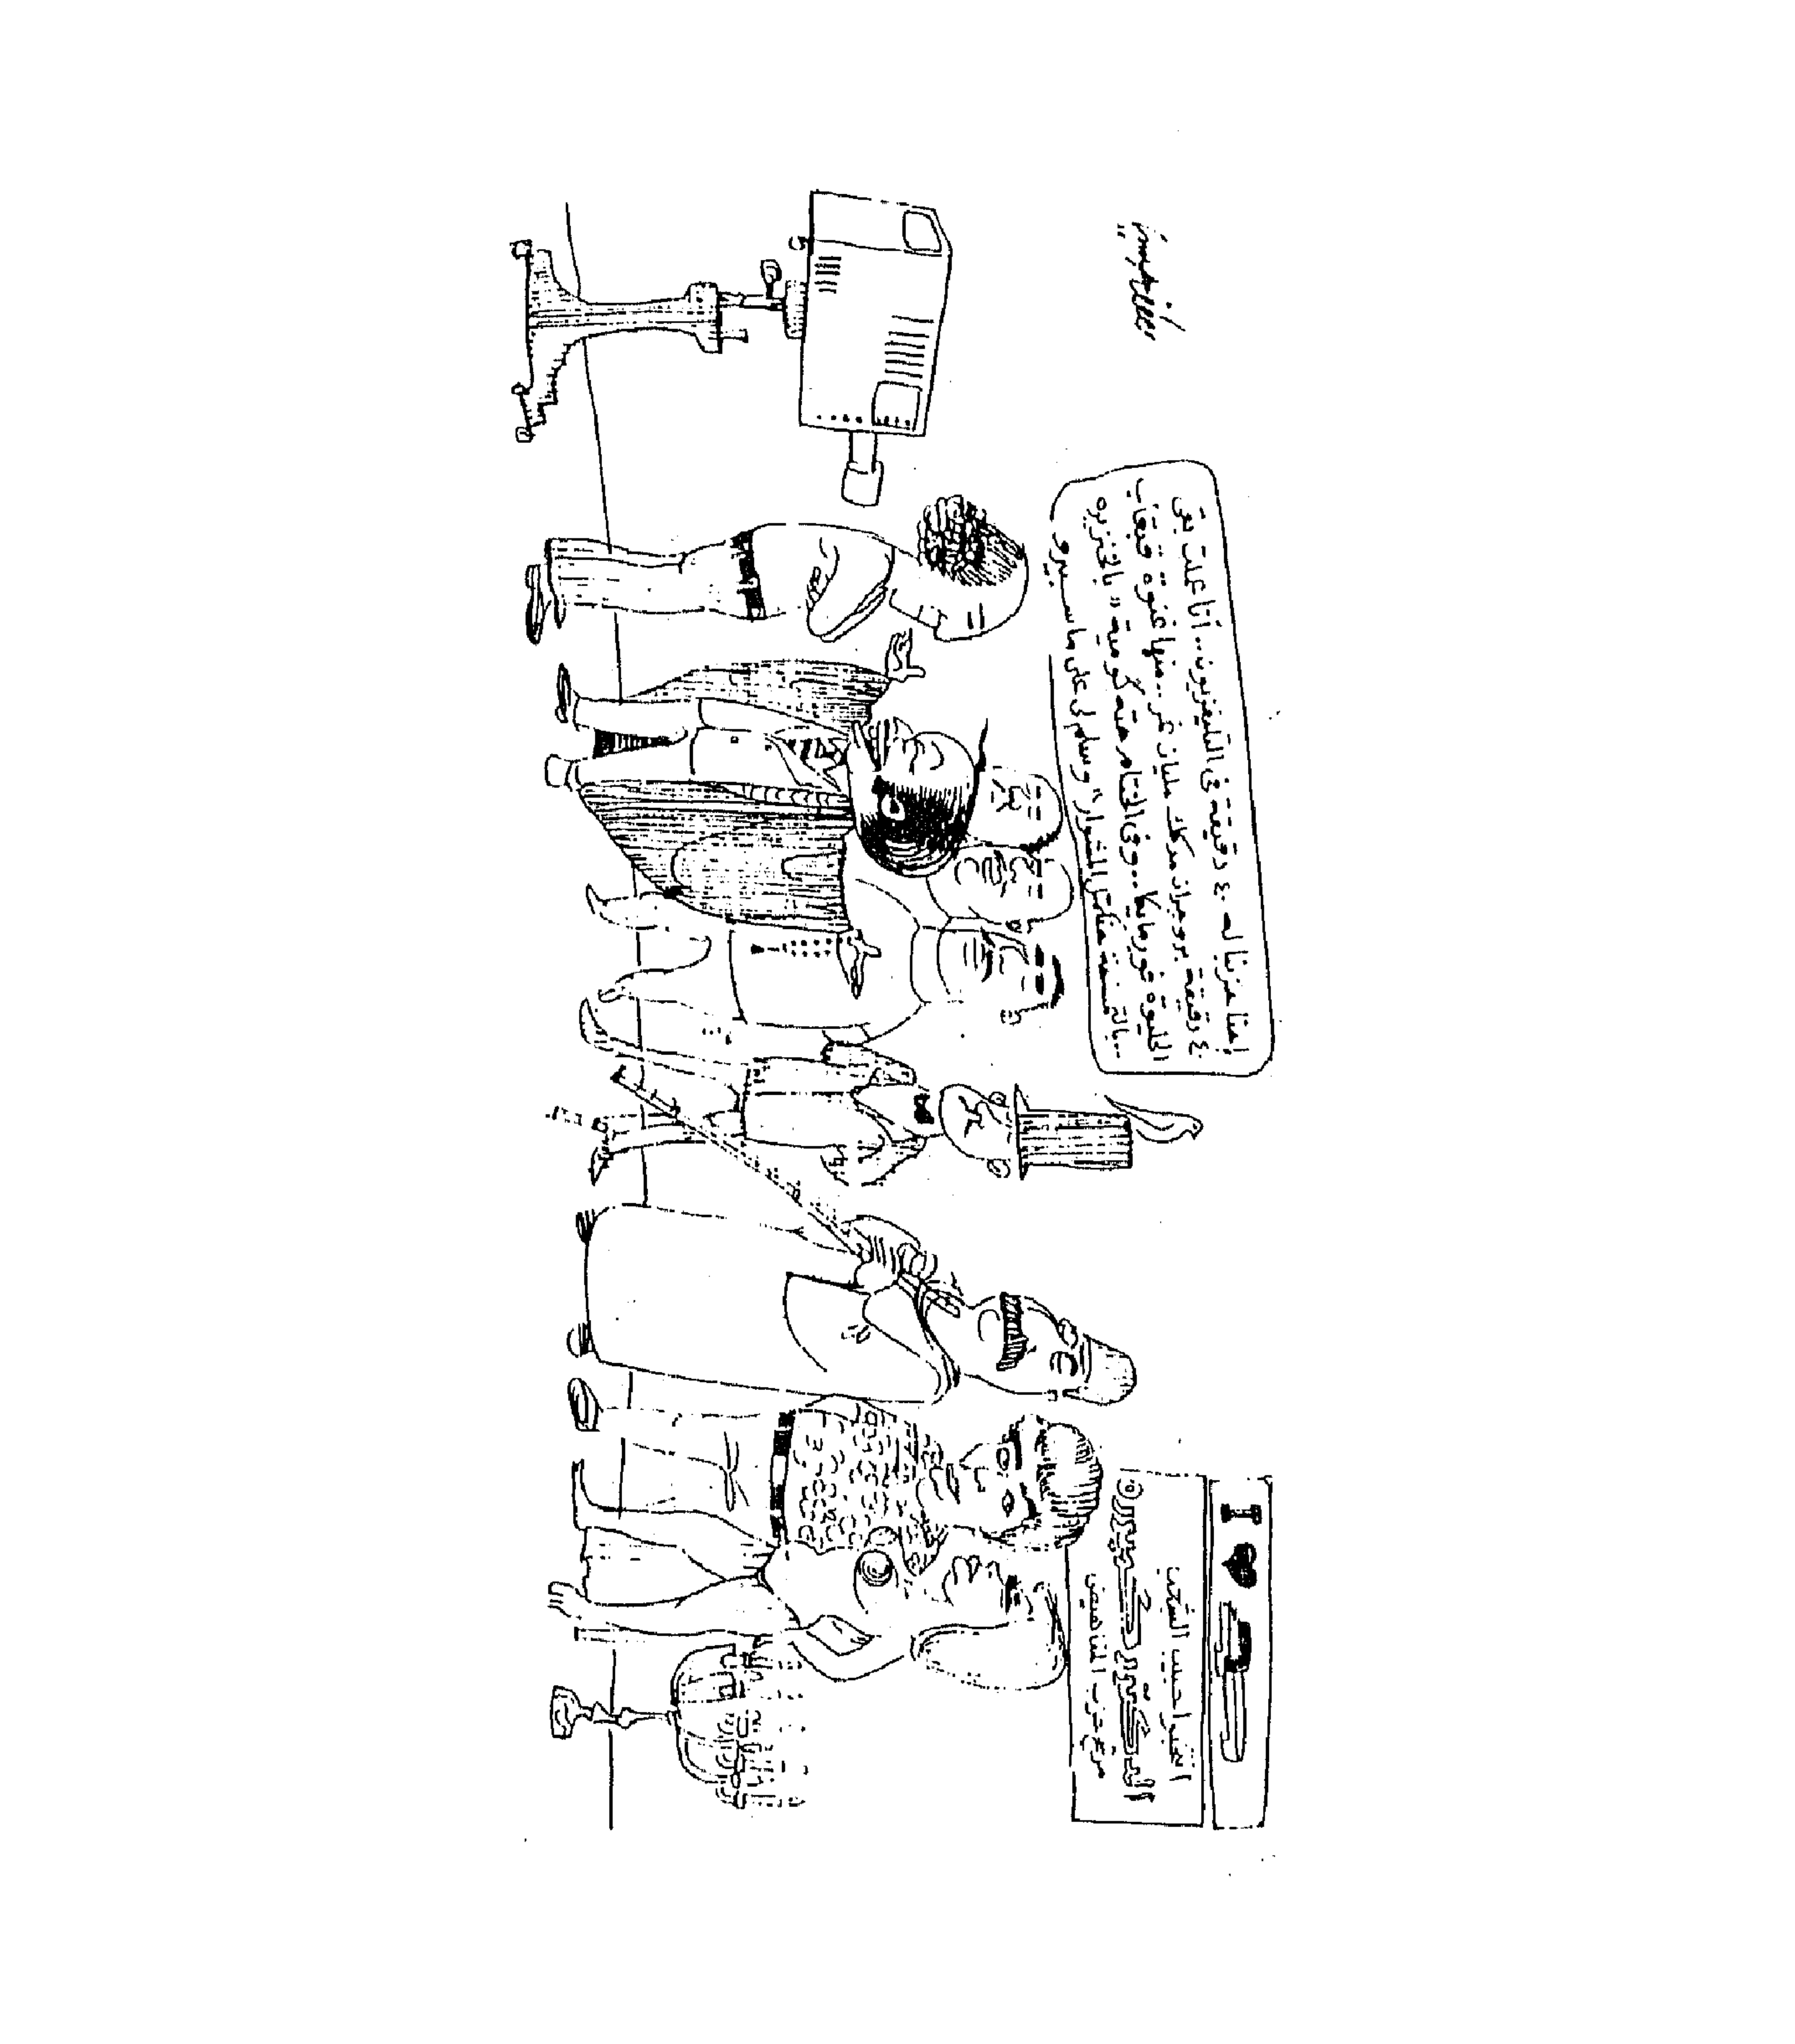 إحنا حزبنا له ٤٠ دقيقة فى التليفزيون.. أنا عملت بقى
٤٠ دقيقة بروجرام مدكك مليان نمر.. منها غنوة قبقاب
الحليوة فورمايكا.. وفى الختام حته كوميدية "بالجنزير
.. هنكمل المشوار" وسلم لى على ماسبيرو
I ♥
انتخبوا حبيب الشعب
الدكتور كمبوره
مرشح حزب